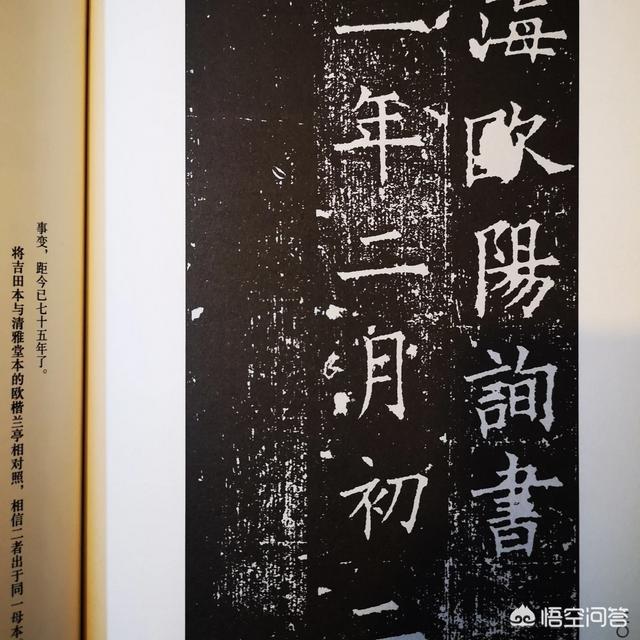 海歐陽詢書
一年二月初二
事变，距今已七十五年了。
将吉田本与清雅堂本的欧楷兰亭相对照，相信二者出于同一母本
悟空问答